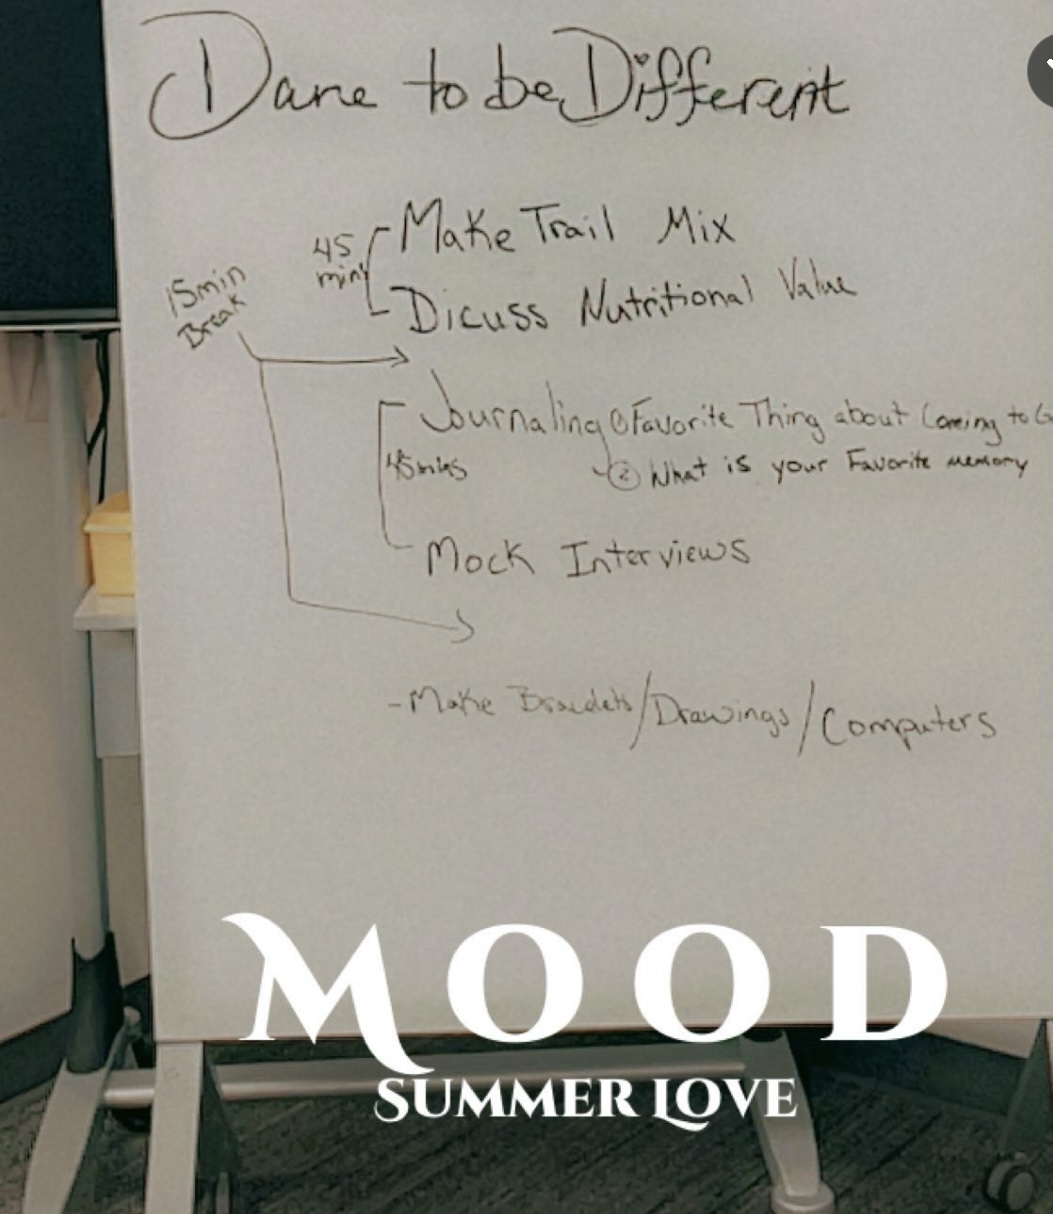 Dare to be Different
45 mins
Make Trail Mix
15min Break
Dicuss Nutritional Value
Journaling ① Favorite Thing about Coming to
② What is your Favorite memory
45mins
Mock Interviews
- Make Bracelets / Drawings / Computers
MOOD
SUMMER LOVE